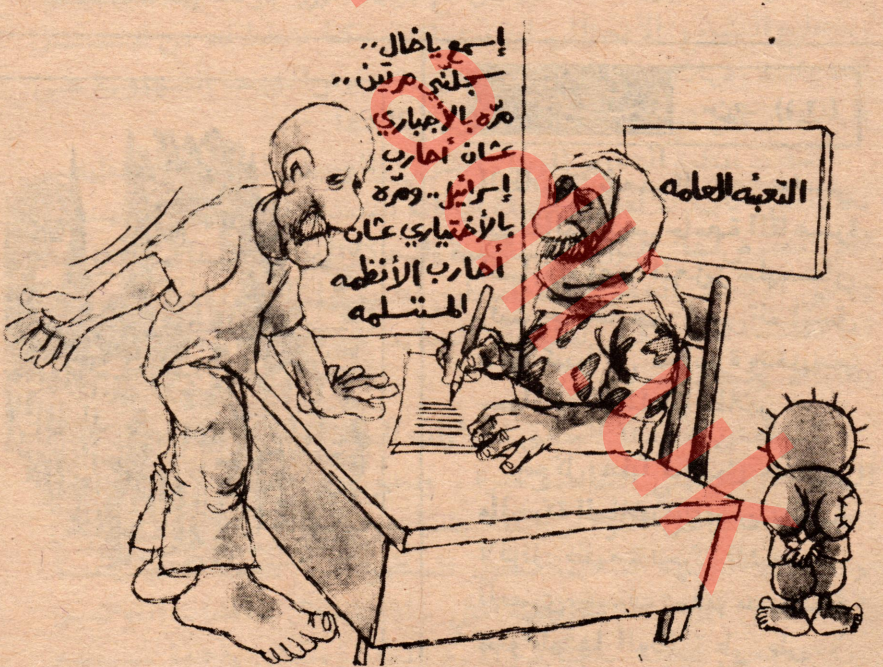 إسمع ياخال..
سجلني مرتين..
مرّه بالأجباري
عشان أحارب
إسرائيل.. ومرّه
بالأختياري عشان
أحارب الأنظمه
المستسلمه
التعبئه العامه